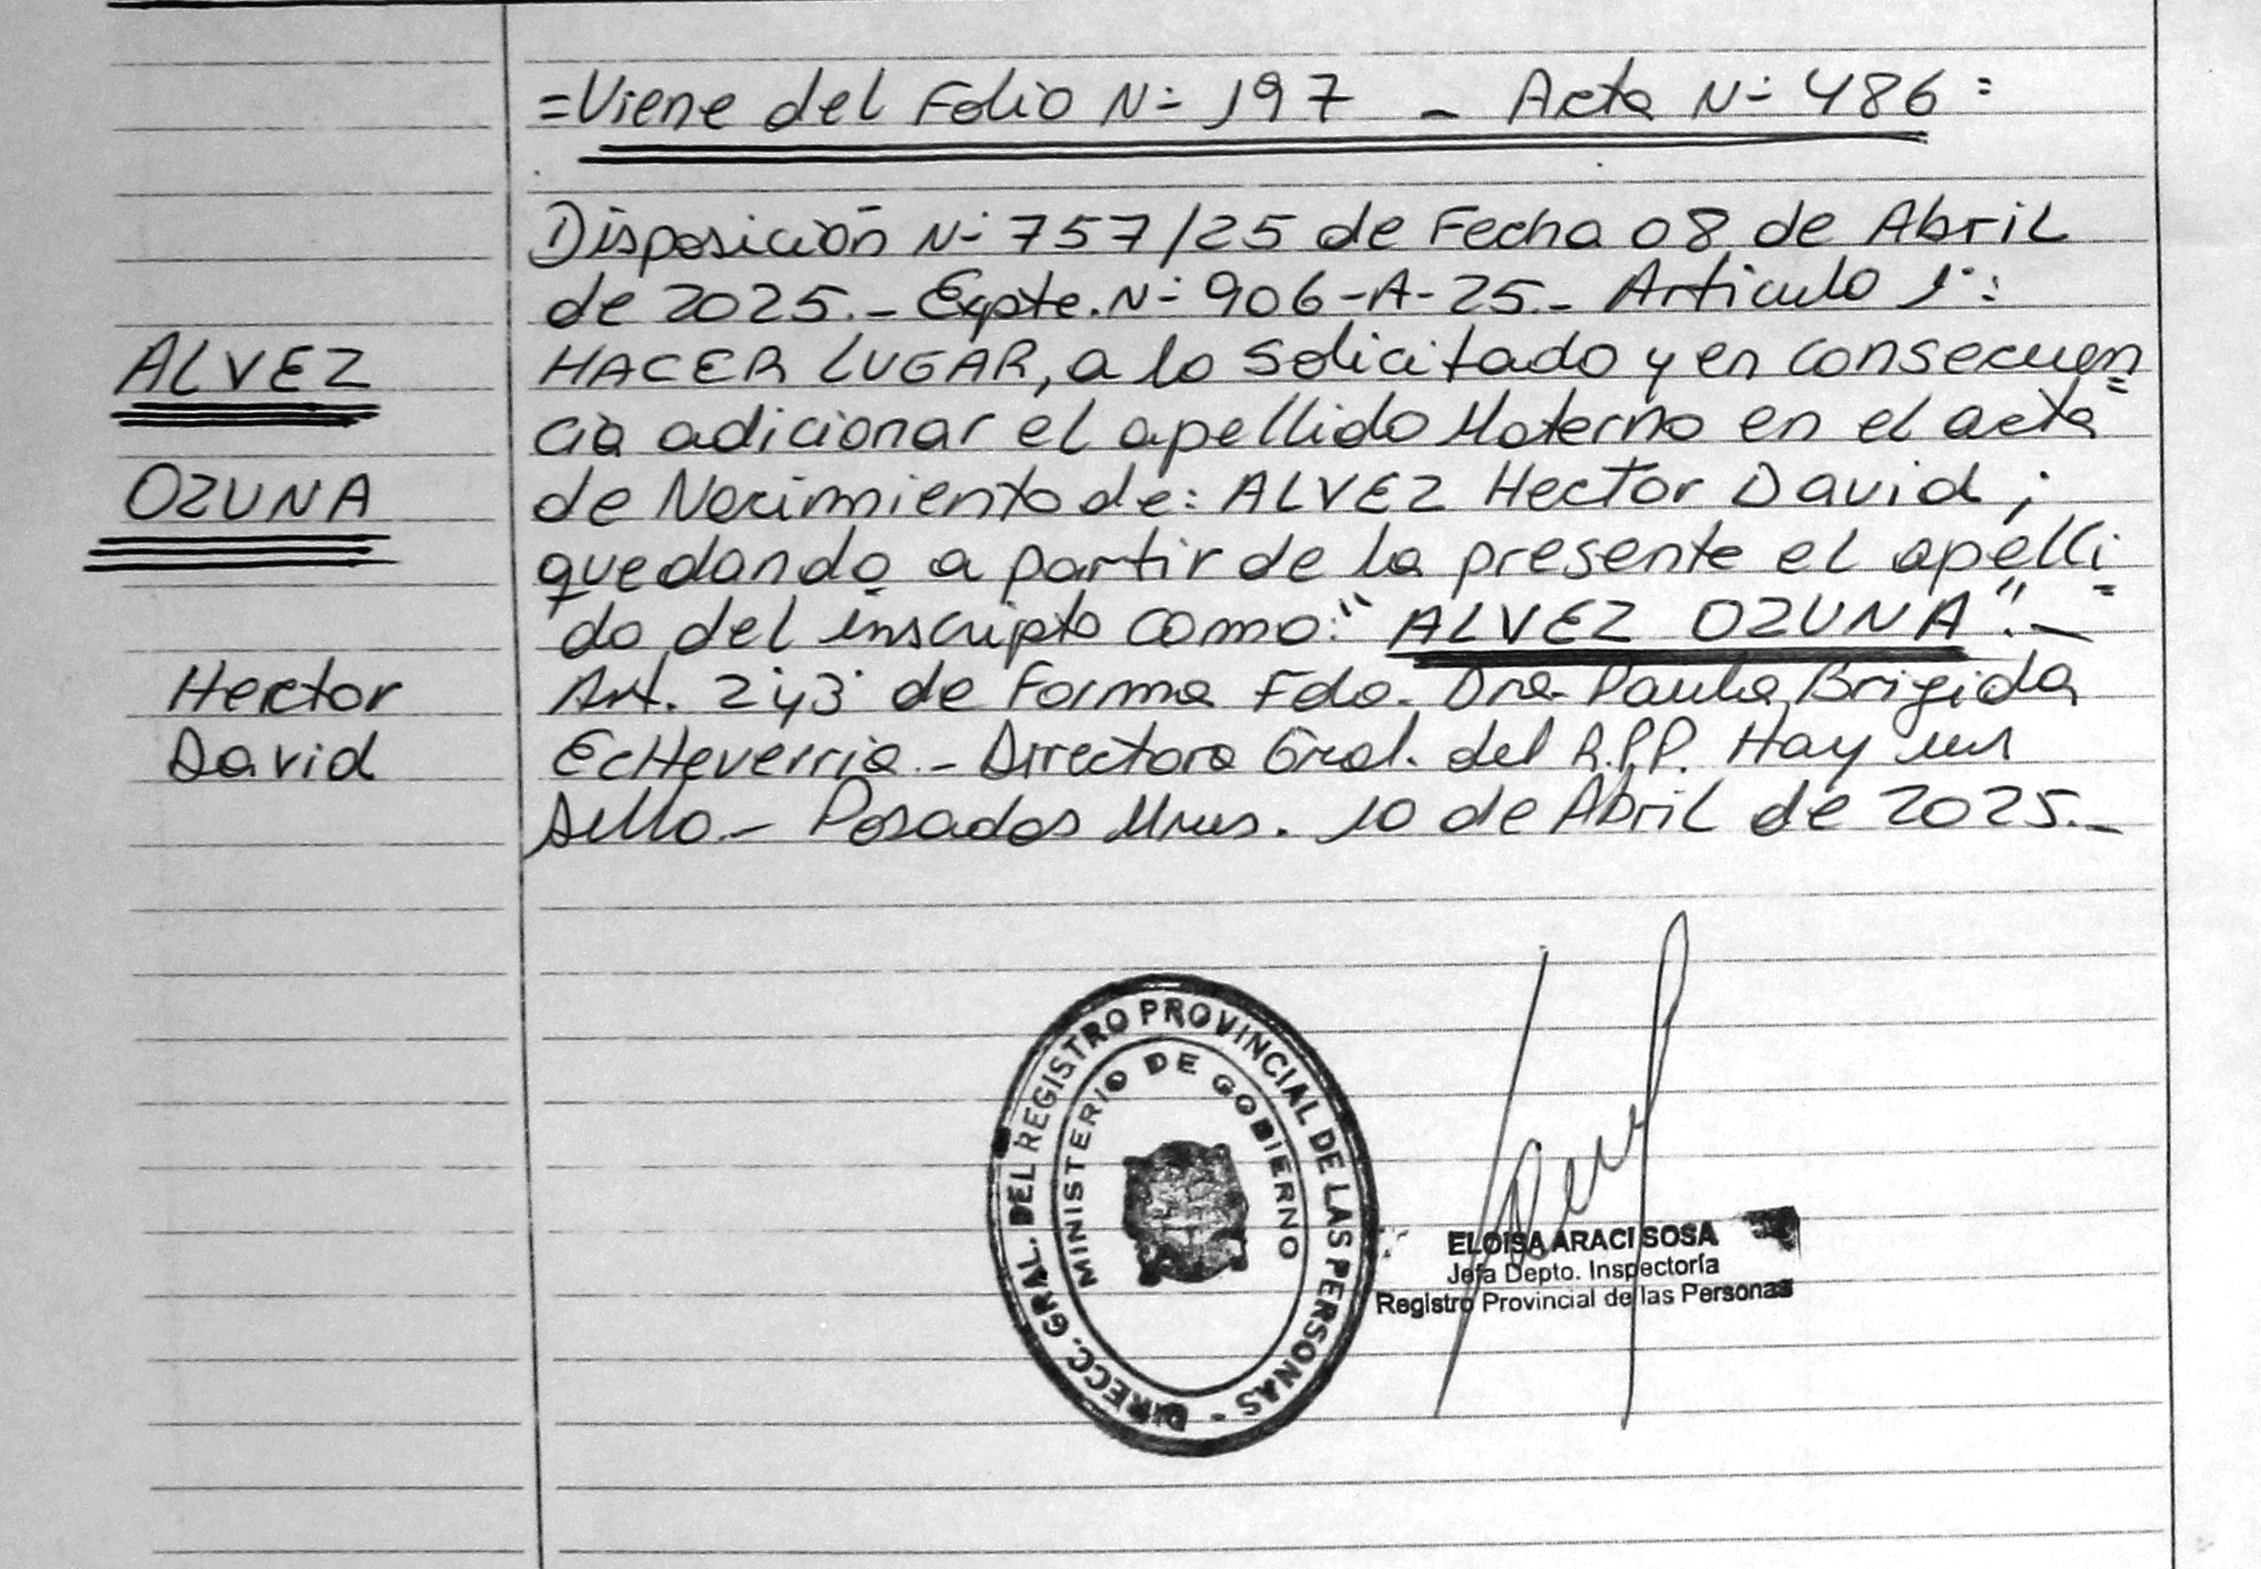 =Viene del Folio N- 197 - Acta N- 486=
Disposición N- 757/25 de Fecha 08 de Abril
de 2025.- Expte. N- 906-A-25.- Articulo 1°:
ALVEZ
HACER LUGAR, a lo solicitado y en consecuen
cia adicionar el apellido Materno en el acta
OZUNA
de Nacimiento de: ALVEZ Hector David;
quedando a partir de la presente el apelli=
do del inscripto como: "ALVEZ OZUNA".-
Hector
Art. 2°y3° de Forma Fdo. Dra. Paula Brigida
David
EcHeverria - Directora Gral. del R.P.P. Hay un
sello.- Posadas Mnes. 10 de Abril de 2025.-
DIRECC. GRAL. DEL REGISTRO PROVINCIAL DE LAS PERSONAS -
MINISTERIO DE GOBIERNO
ELOISA ARACI SOSA
Jefa Depto. Inspectoría
Registro Provincial de las Personas